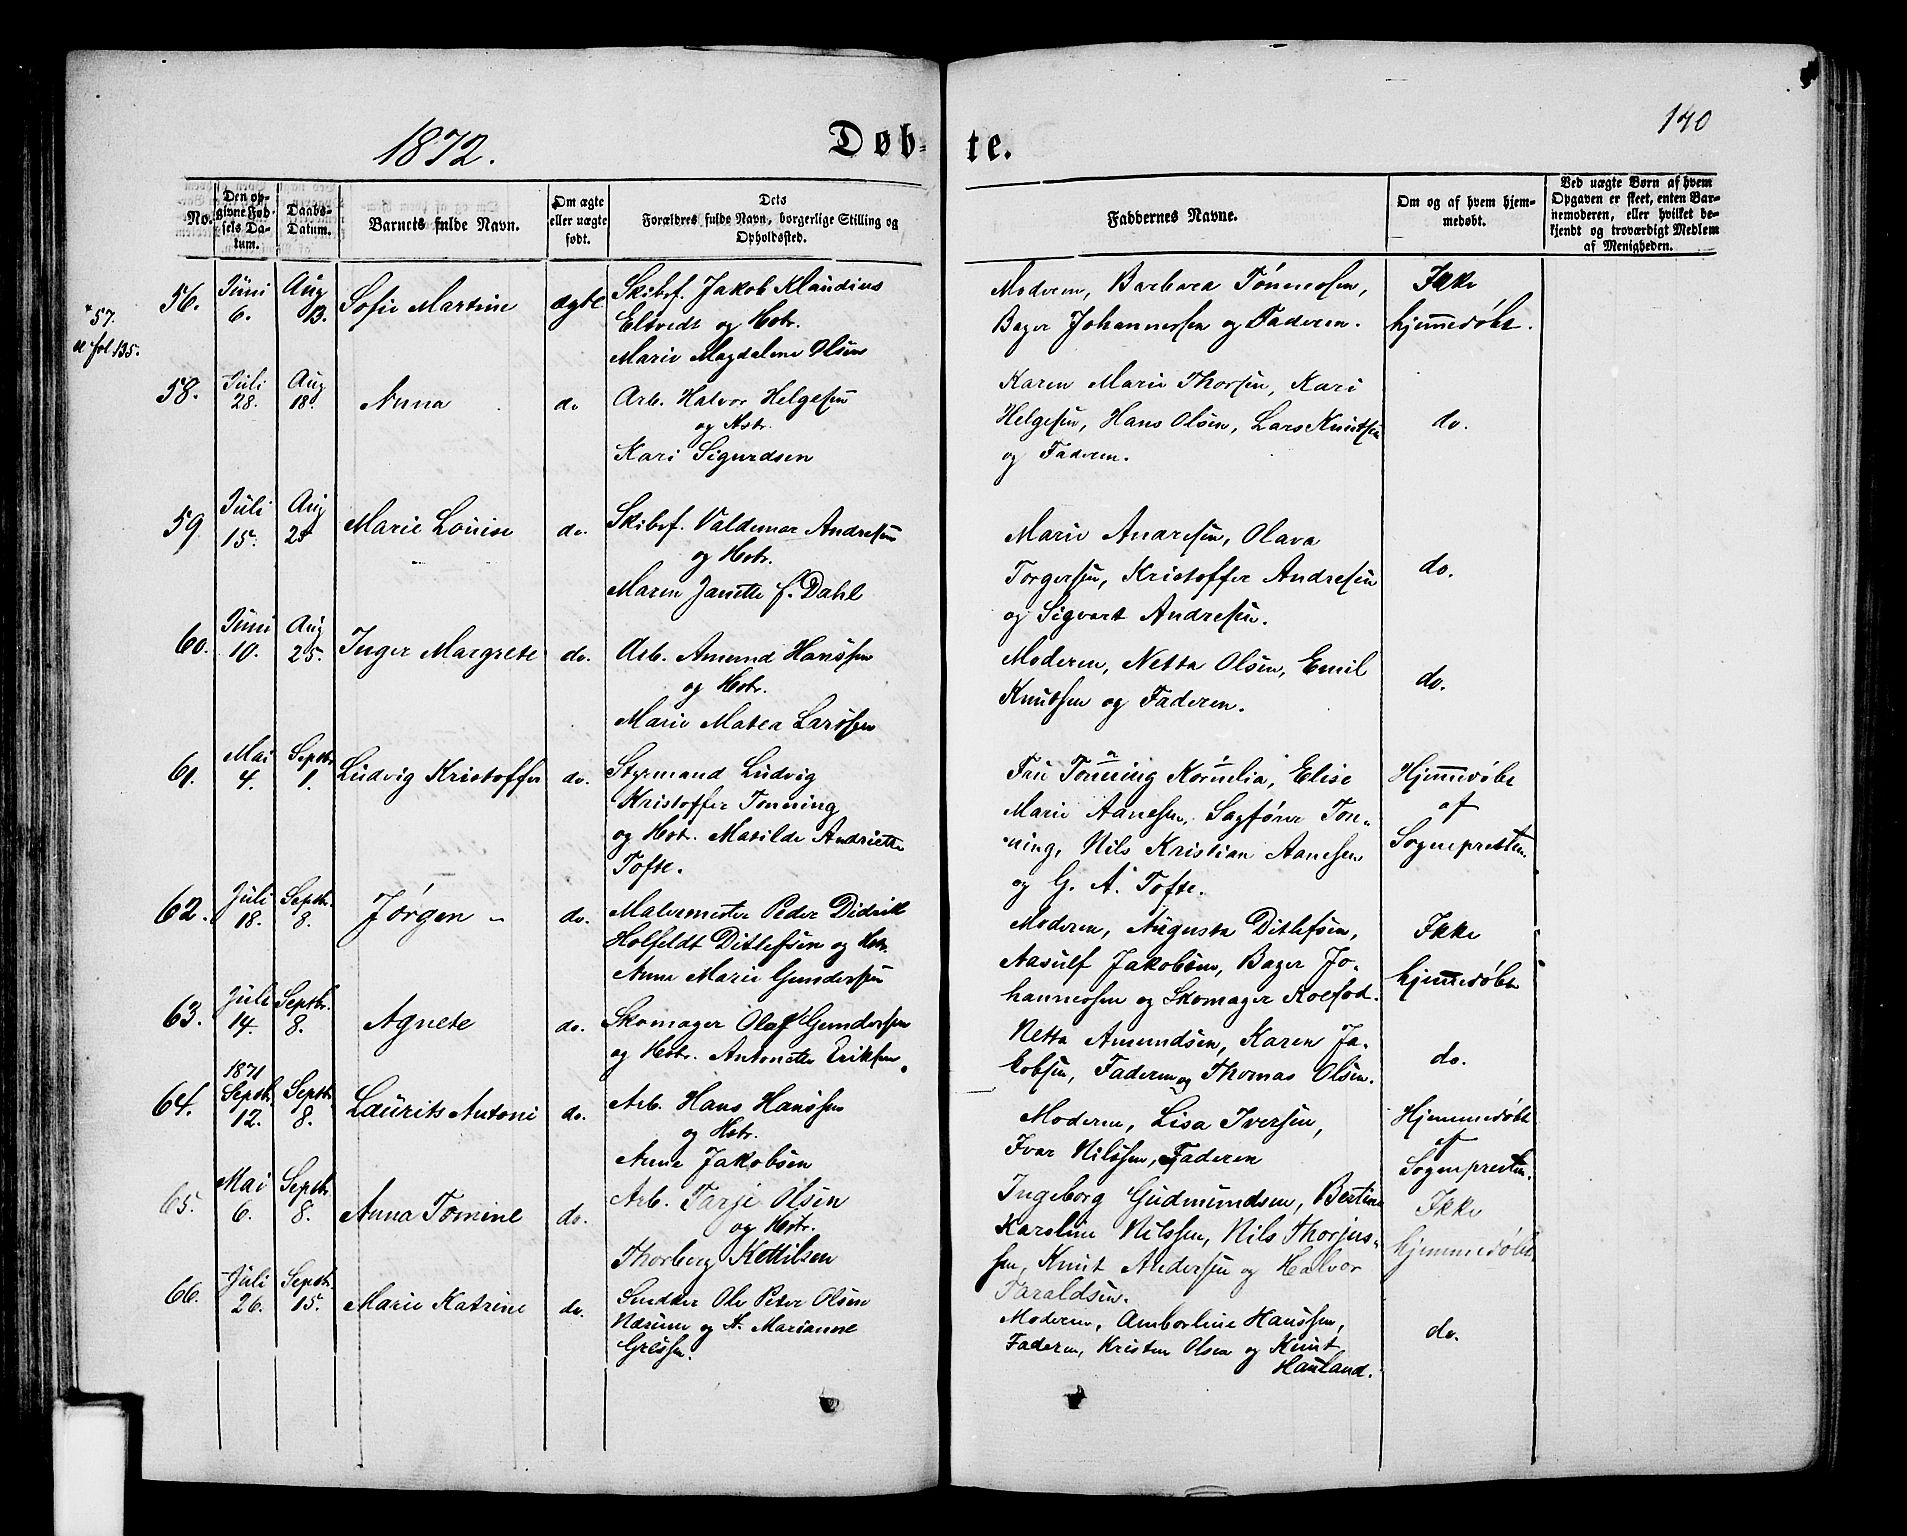 140
1872.
Døb-
te.
No.
Den op-
givne Fød-
sels Da-
tum.
Daabs-
Datum.
Barnets fulde Navn.
Om ægte
eller uægte
født.
Dets
Forældres fulde Navn, borgerlige Stilling og
Opholdssted.
Faddernes Navne.
Om og af hvem hjem-
medøbt.
Ved uægte Børn af hvem
Opgaven er skeet, enten Bar-
nemoderen, eller hvilket be-
kjendt og troværdigt Medlem
af Menigheden.
56.
Juni
6.
Aug
13.
Sofie Martine
ægte
Skibsf. Jakob Klaudius
Eltvedt og Hstr.
Marie Magdalene Olsen
Moderen, Barbara Tønnesen,
Bager Johannessen og Faderen.
Ikke
hjemmedøbt.
*57.
se fol 135.
58.
Juli
28.
Aug
18.
Anna
do
Arb. Halvor Helgesen
og Hstr.
Kari Sigurdsen
Karen Marie Thorsen, Kari
Helgesen, Hans Olsen, Lars Knutsen
og Faderen.
do.
59
Juli
15.
Aug
25
Marie Louise
do.
Skibsf. Valdemar Andresen
og Hstr.
Maren Janette f. Dahl
Marie Andresen, Olava
Torgersen, Kristoffer Andresen
og Sigvart Andresen.
do.
60.
Juni
10.
Aug
25.
Inger Margrete
do.
Arb. Amund Hanssen
og Hstr.
Marie Matea Larssen
Moderen, Netta Olsen, Emil
Knutsen og Faderen.
do.
61.
Mai
4.
Septbr
1.
Ludvig Kristoffer
do.
Styrmand Ludvig
Kristoffer Tonning
og Hstr. Matilde Andriette
Tofte.
Fru Tonning Kornelia, Elise
Marie Aanesen, Sagfører Ton-
ning, Nils Kristian Aanesen
og G. A. Tofte.
Hjemmedøbt
af
Sognepresten.
62.
Juli
18.
Septbr.
8.
Jørgen
do.
Malermester Peder Didrik
Holfeldt Ditlefsen og Hstr.
Anne Marie Gundersen
Moderen, Augusta Ditlefsen,
Aasulf Jakobsen, Bager Jo-
hannessen og Skomager Kolfod.
Ikke
hjemmedøbt
63.
Juli
14.
Septbr.
8.
Agnete
do.
Skomager Olaf Gundersen
og Hstr. Antonette Eriksen.
Netta Amundsen, Karen Ja-
kobsen, Faderen og Thomas Olsen.
do.
64.
1871
Septbr.
12.
Septbr.
8.
Laurits Antoni
do.
Arb. Hans Hanssen
og Hstr.
Anne Jakobsen
Moderen, Lisa Iversen,
Ivar Nilssen, Faderen
Hjemmedøbt
af
Sognepresten.
65.
Mai
6.
Septbr.
8.
Anna Tomine
do.
Arb. Tarje Olsen
og Hstr.
Thorberg Kettilsen
Ingeborg Gudmundsen, Bertine
Karoline Nilssen, Nils Thorjus-
sen, Knut Andersen og Halvor
Taraldsen.
Ikke
hjemmedøbt
66.
Juli
26.
Septbr.
15.
Marie Katrine
do.
Snedker Ole Peter Olsen
og H. Marianne
Moderen, Amborline Hanssen,
Faderen, Kristen Olsen og Knut
Hauland.
do.